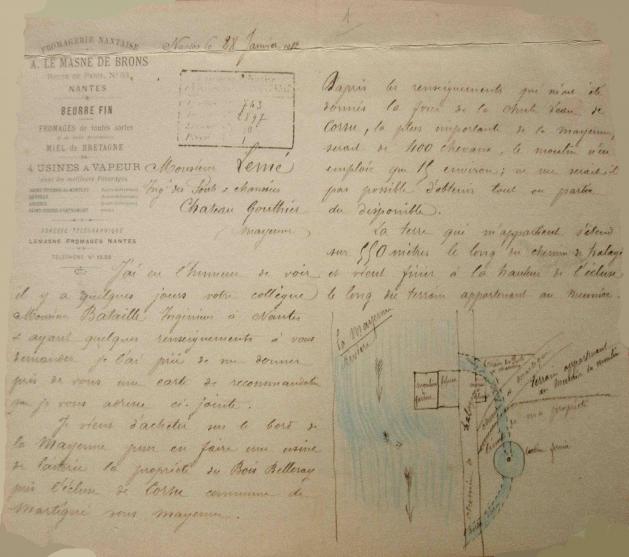 1
FROMAGERIE NANTAISE
A. LE MASNE DE BRONS
NANTES
BEURRE FIN
FROMAGES de toutes sortes
MIEL DE BRETAGNE
4 USINES A VAPEUR
ADRESSE TÉLÉGRAPHIQUE
LEMASNE FROMAGES NANTES
TÉLÉPHONE
Nantes le 28 Janvier
743
Monsieur Lemé
Ing des Ponts & chaussées
Chateau Gonthier
Mayenne
J'ai eu l'honneur de voir
il y a quelques jours votre collègue
Monsieur Bataille Ingénieur à Nantes
& ayant quelques renseignements à vous
demander je l'ai prié de me donner
près de vous une carte de recommandation
que je vous adresse ci-jointe.
Je viens d'acheter sur le bord de
la Mayenne pour en faire une usine
de laiterie la propriété du Bois Belleray
près l'écluse de Corçu commune de
Martigné sous Mayenne.
D'après les renseignements qui m'ont été
donnés la force de la chute d'eau de
Corçu, la plus importante de la Mayenne,
serait de 400 chevaux, le moulin n'en
emploie que 15 environ; ne me serait-il
pas possible d'obtenir tout ou partie
du disponible.
La terre qui m'appartient s'étend
sur 550 mètres le long du chemin de halage
et vient finir à la hauteur de l'écluse
le long du terrain appartenant au meunier.
La Mayenne
Rivière
moulin
écluse
terrain appartenant
au meunier du moulin
ma propriété